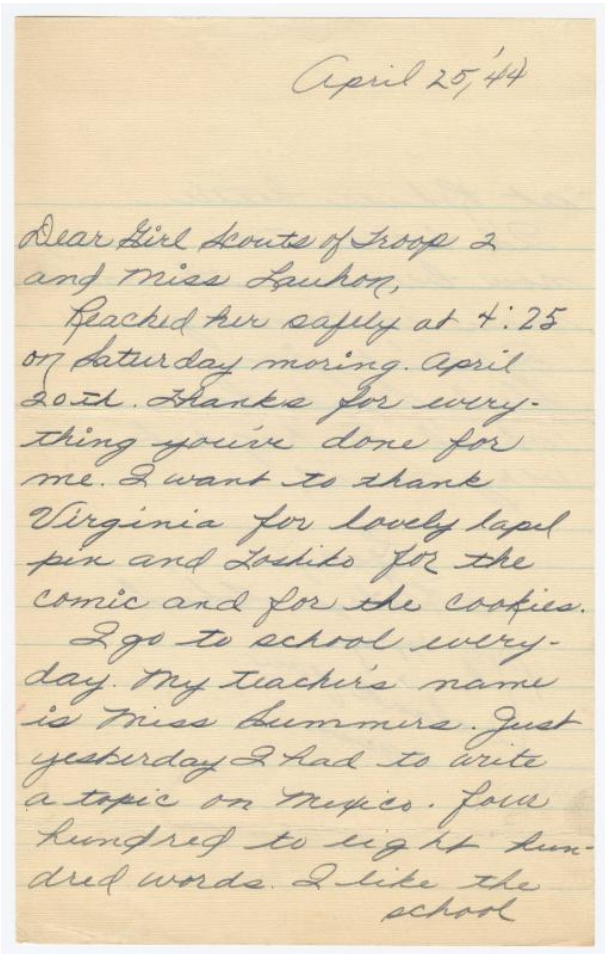 April 25, '44
Dear Girl Scouts of Troop 2
and Miss Lauhon,
Reached her safely at 4:25
on Saturday moring. April
20th. Thanks for every-
thing you've done for
me. I want to thank
Virginia for lovely lapel
pin and Toshiko for the
comic and for the cookies.
I go to school every-
day. My teacher's name
is Miss Summers. Just
yesterday I had to write
a topic on Mexico. four
hundred to eight hun-
dred words. I like the
school